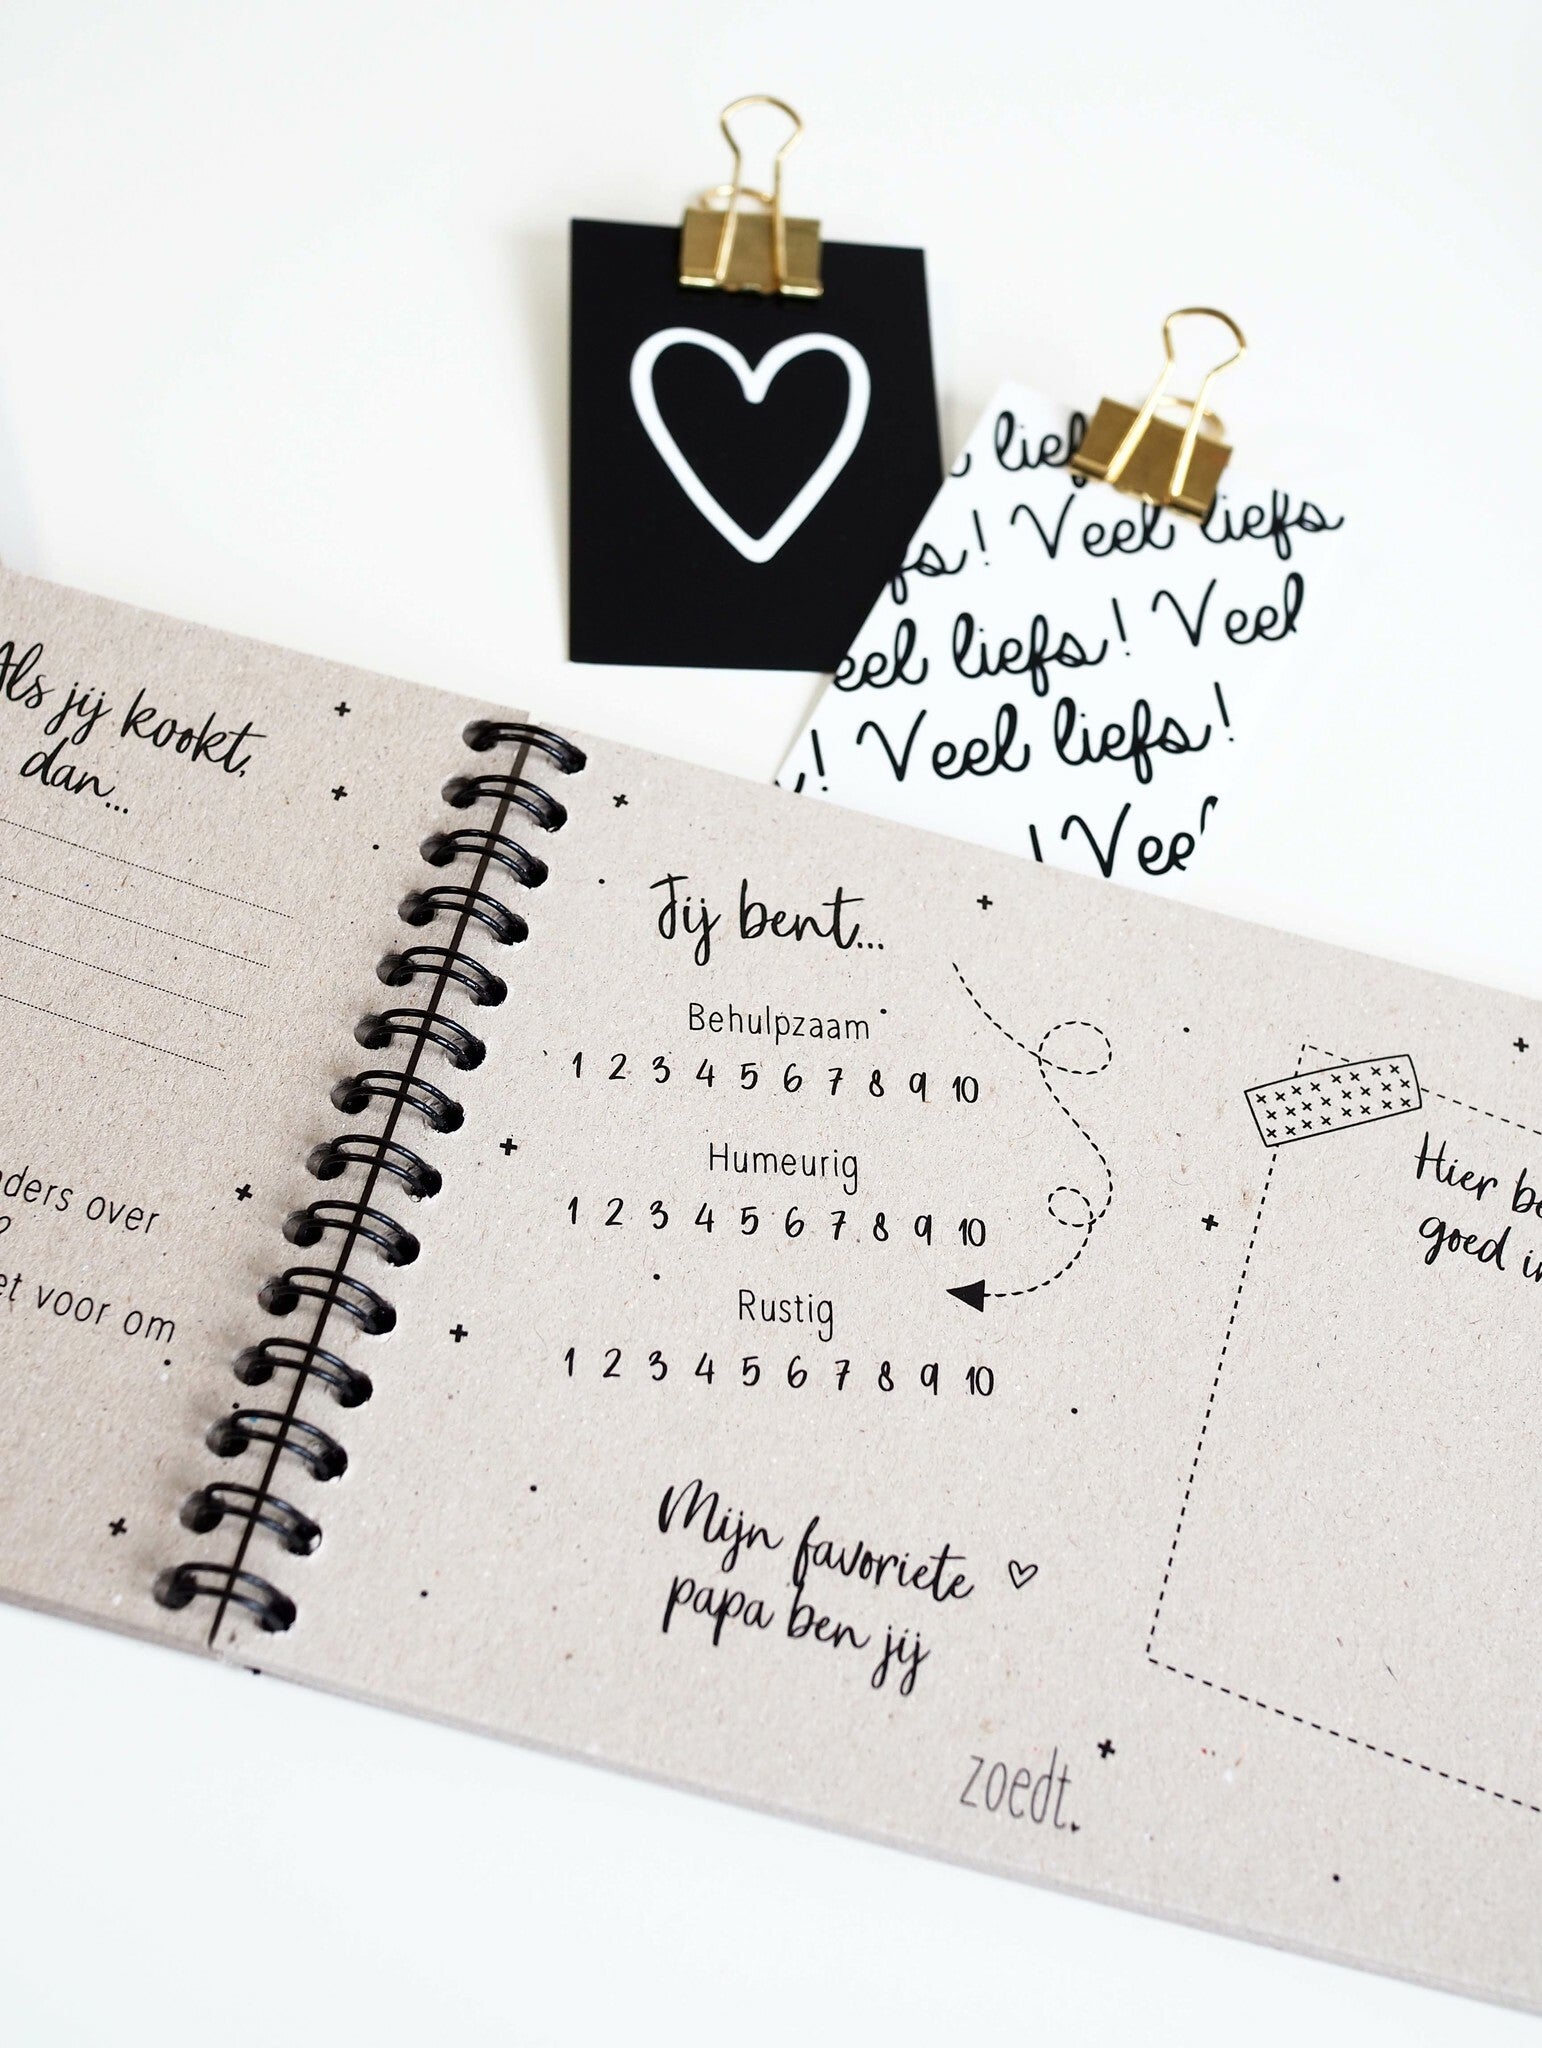 lief
! Veel liefs
liefs! Veel
! Veel liefs!
! Veel
Als jij kookt,
dan...
over
voor om
Jij bent...
Behulpzaam
1 2 3 4 5 6 7 8 9 10
Humeurig
1 2 3 4 5 6 7 8 9 10
Rustig
1 2 3 4 5 6 7 8 9 10
Mijn favoriete
papa ben jij
zoedt.
Hier
goed